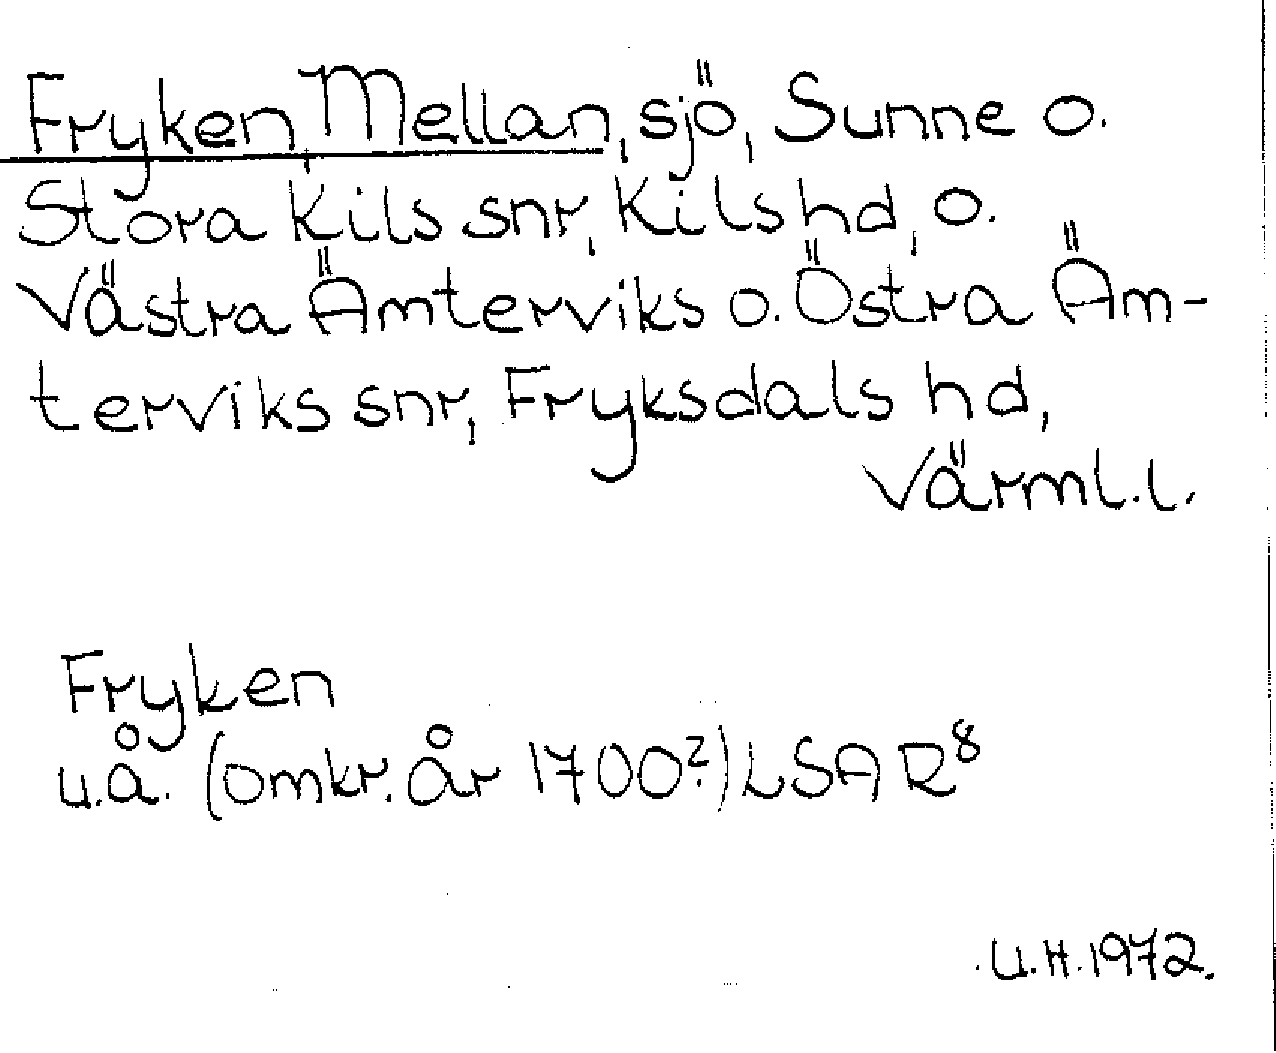 Fryken, Mellan, sjö, Sunne o.
Stora Kils snr, Kils hd, o.
Västra Ämterviks o. Östra Äm-
terviks snr, Fryksdals hd,
Värml. l.
Fryken
u.å. (omkr. år 1700?) LSA R8
U.H. 1972.